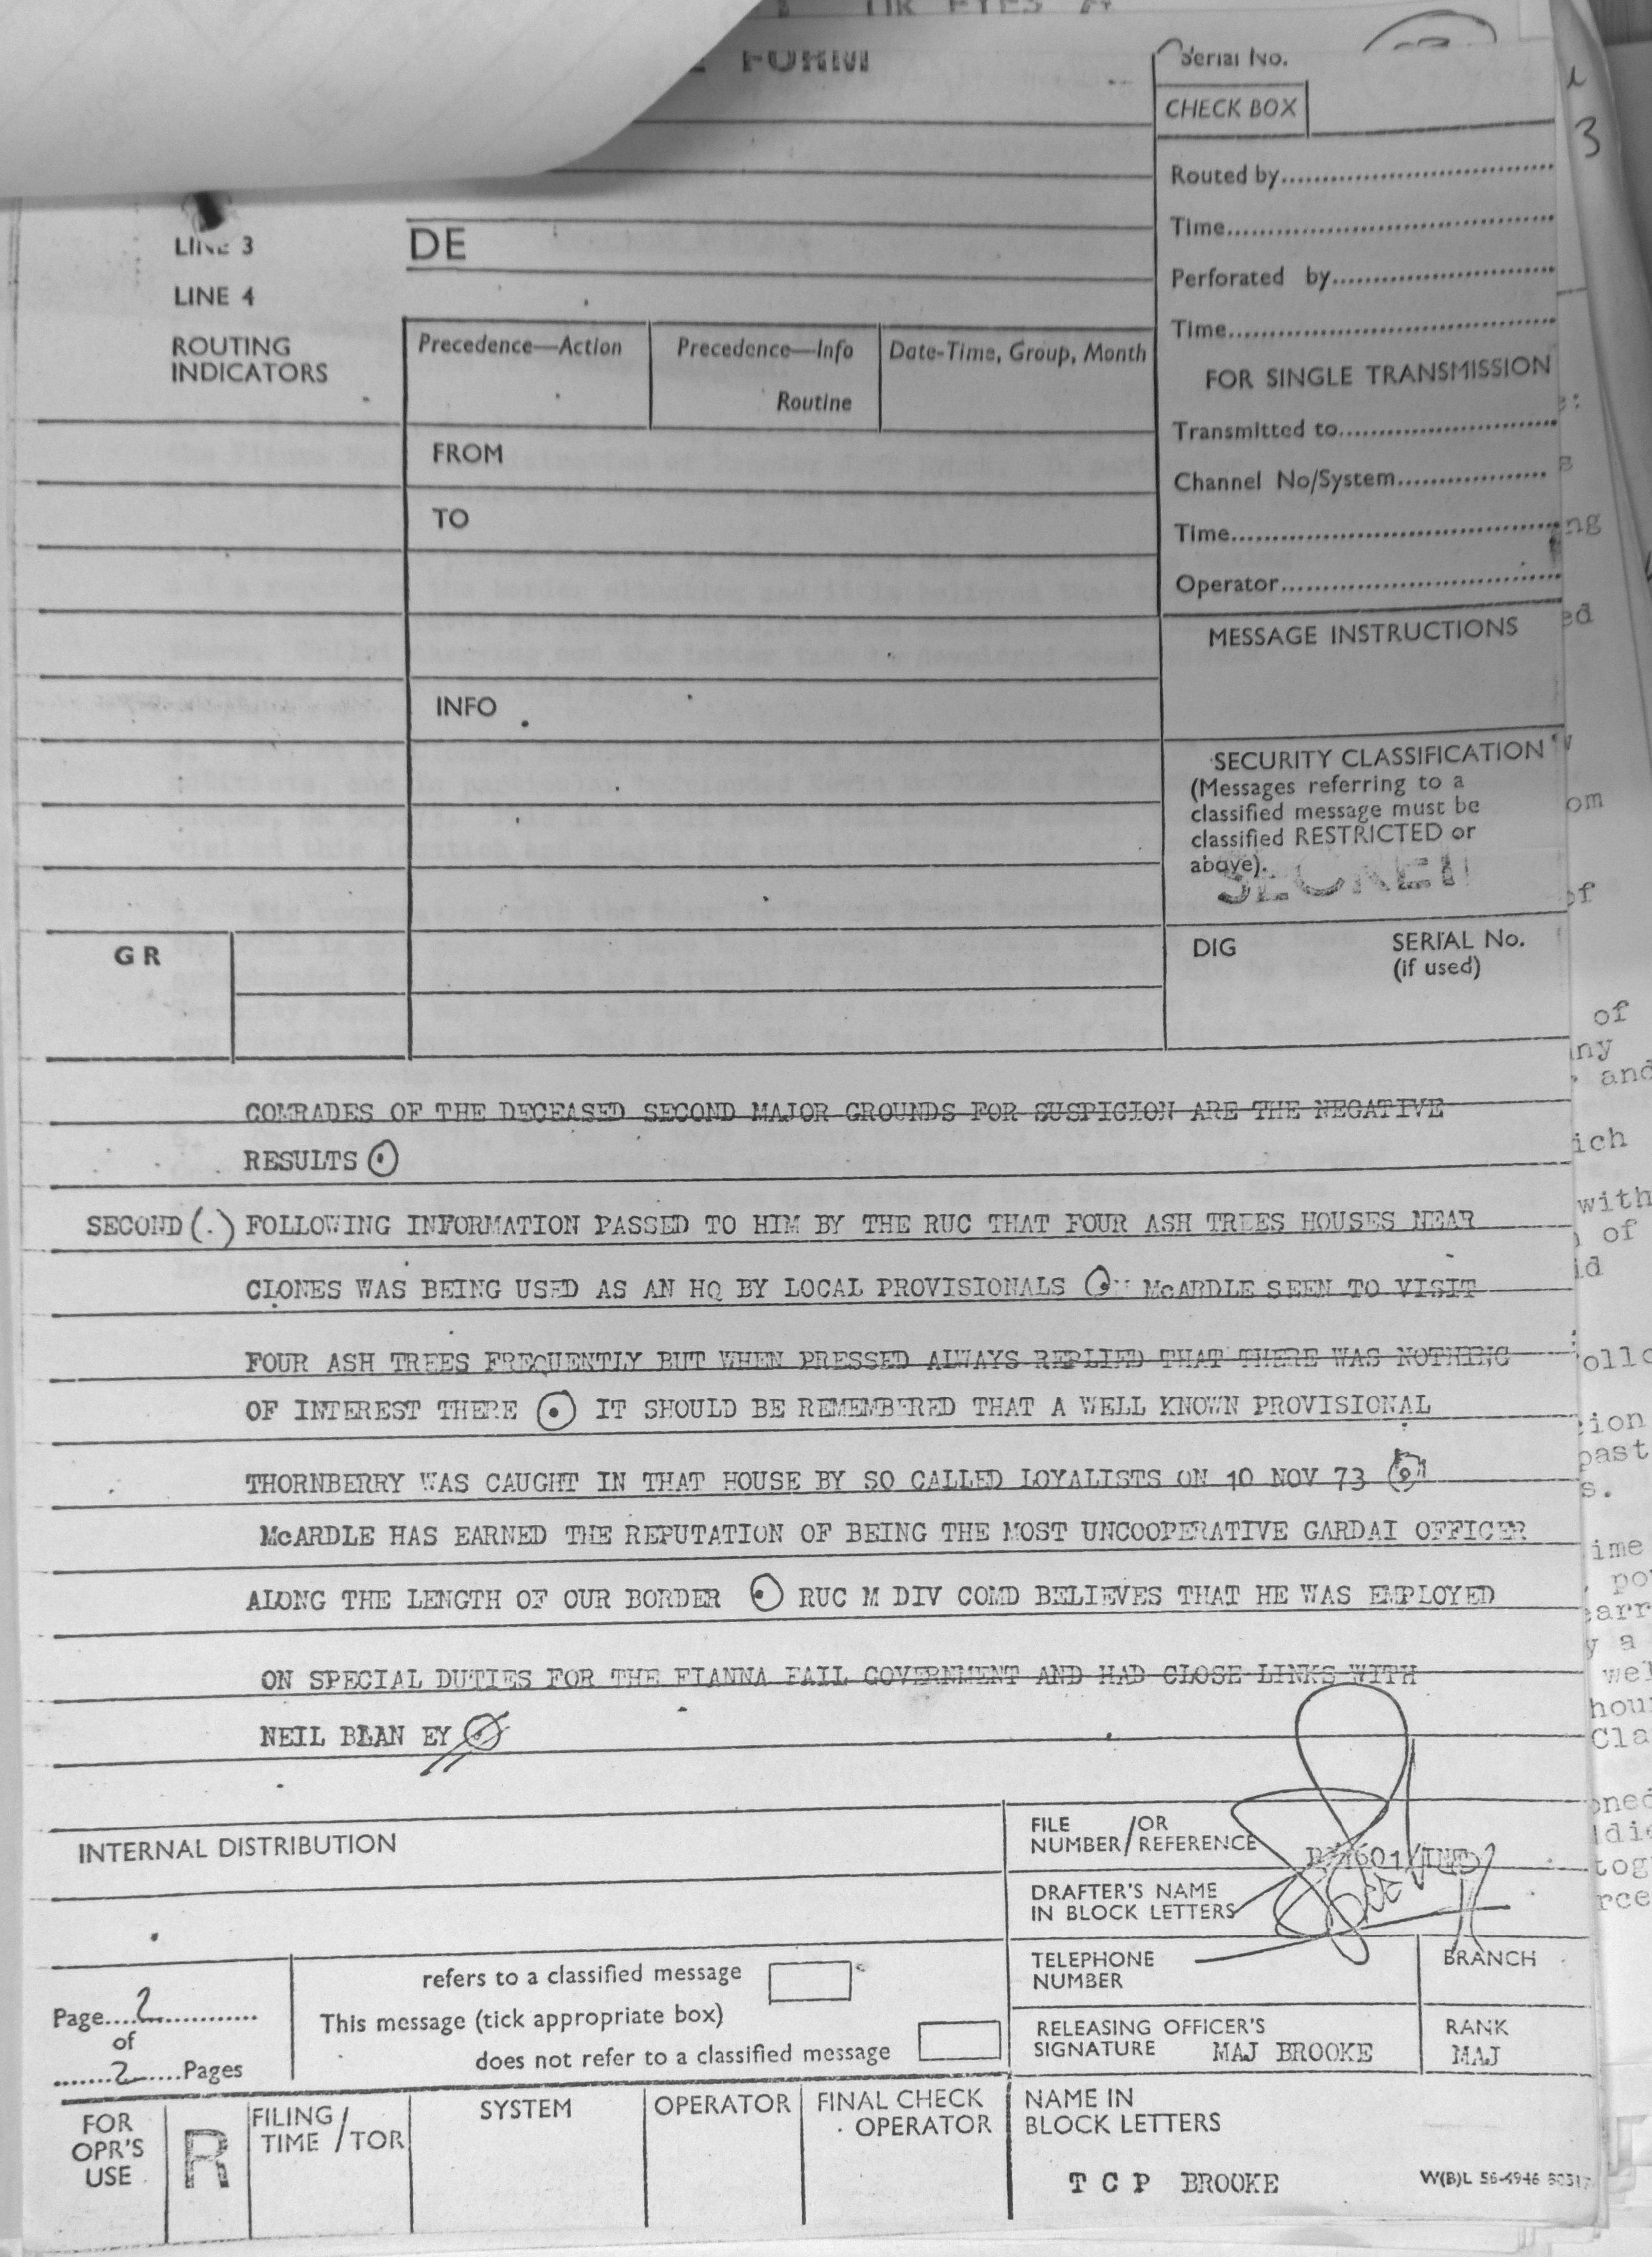 UK EYES A
FORM
Serial No.
CHECK BOX
3
Routed by
Time
Perforated by
Time
FOR SINGLE TRANSMISSION
Transmitted to
Channel No/System
Time
Operator
LINE 3
DE
LINE 4
ROUTING
INDICATORS
Precedence—Action
Precedence—Info
Routine
Date-Time, Group, Month
FROM
TO
INFO
MESSAGE INSTRUCTIONS
SECURITY CLASSIFICATION
(Messages referring to a
classified message must be
classified RESTRICTED or
above).
SECRET
GR
DIG
SERIAL No.
(if used)
COMRADES OF THE DECEASED SECOND MAJOR GROUNDS FOR SUSPICION ARE THE NEGATIVE
RESULTS (.)
SECOND (.) FOLLOWING INFORMATION PASSED TO HIM BY THE RUC THAT FOUR ASH TREES HOUSES NEAR
CLONES WAS BEING USED AS AN HQ BY LOCAL PROVISIONALS (.) McARDLE SEEN TO VISIT
FOUR ASH TREES FREQUENTLY BUT WHEN PRESSED ALWAYS REPLIED THAT THERE WAS NOTHING
OF INTEREST THERE (.) IT SHOULD BE REMEMBERED THAT A WELL KNOWN PROVISIONAL
THORNBERRY WAS CAUGHT IN THAT HOUSE BY SO CALLED LOYALISTS ON 10 NOV 73 (.)
McARDLE HAS EARNED THE REPUTATION OF BEING THE MOST UNCOOPERATIVE GARDAI OFFICER
ALONG THE LENGTH OF OUR BORDER (.) RUC M DIV COMD BELIEVES THAT HE WAS EMPLOYED
ON SPECIAL DUTIES FOR THE FIANNA FAIL GOVERNMENT AND HAD CLOSE LINKS WITH
NEIL BLAN EY (.)
INTERNAL DISTRIBUTION
FILE / OR
NUMBER / REFERENCE
DRAFTER'S NAME
IN BLOCK LETTERS
TELEPHONE
NUMBER
BRANCH
refers to a classified message
This message (tick appropriate box)
does not refer to a classified message
Page 2
of
2 Pages
RELEASING OFFICER'S
SIGNATURE MAJ BROOKE
RANK
MAJ
FOR
OPR'S
USE
R
FILING /
TIME / TOR
SYSTEM
OPERATOR
FINAL CHECK
OPERATOR
NAME IN
BLOCK LETTERS
T C P BROOKE
W(B)L 56-4946